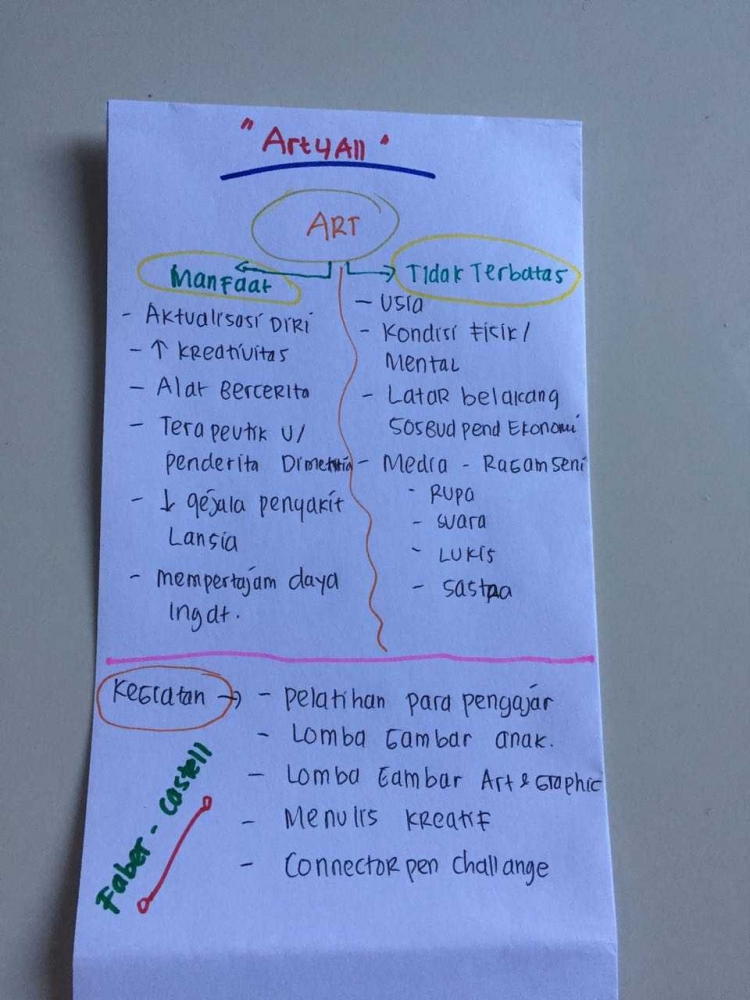 "Art4All"
ART
Manfaat
- Aktualisasi DIRI
- ↑ kreativitas
- Alat Bercerita
- Terapeutik u/
penderita Dimentia
- ↓ gejala penyakit
Lansia
- mempertajam daya
Ingat.
Tidak Terbatas
- Usia
- Kondisi Fisik/
Mental
- Latar belakang
SosBud pend Ekonomi
- Media - Ragam seni
- Rupa
- suara
- Lukis
- sastra
Kegiatan → - pelatihan para pengajar
- Lomba Gambar anak.
- Lomba Gambar Art & Graphic
- Menulis kreatif
- Connector pen challange
Faber-Castell